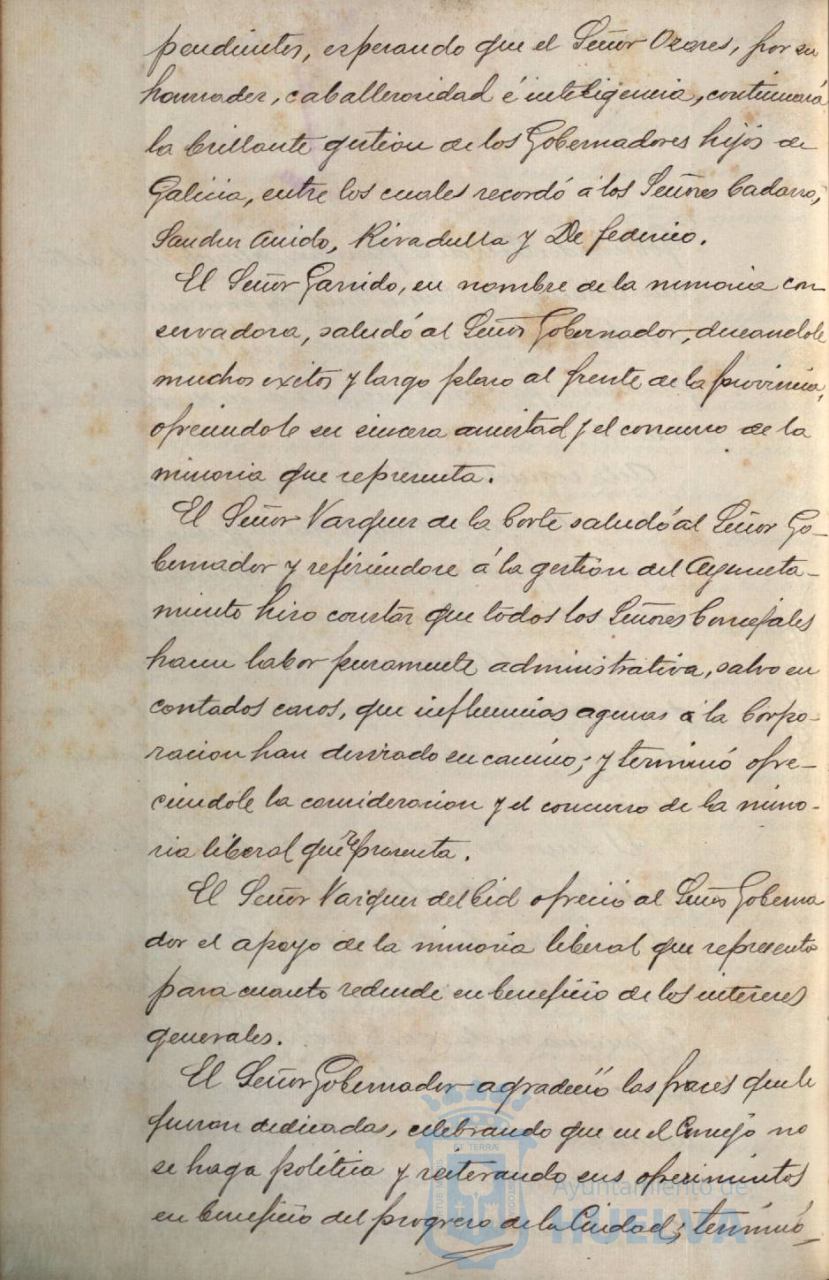 pendientes, esperando que el Señor Ozores, por su
honradez, caballerosidad é inteligencia, continuará
la brillante gestion de los Gobernadores hijos de
Galicia, entre los cuales recordó á los Señores Cadarso,
Sanchez Anido, Rivadulla y De Federico.
El Señor Garrido, en nombre de la minoria con
servadora, saludó al Señor Gobernador, deseandole
muchos exitos y largo plazo al frente de la provincia,
ofreciendole su sincera amistad y el concurso de la
minoria que representa.
El Señor Vazquez de la Corte saludó al Señor Go-
bernador y refiriéndose á la gestion del Ayunta-
miento hizo constar que todos los Señores Concejales
hacen labor puramente administrativa, salvo en
contados casos, que influencias agenas a la Corpo-
racion han desviado su camino; y terminó ofre-
ciendole la consideracion y el concurso de la mino-
ria liberal que representa.
El Señor Vazquez del Cid ofreció al Señor Goberna
dor el apoyo de la minoria liberal que representa
para cuanto redunde en beneficio de los intereses
generales.
El Señor Gobernador agradeció las frases que le
fueron dedicadas, celebrando que en el Concejo no
se haga política y reiterando sus ofrecimientos
en beneficio del progreso de la Ciudad; terminó
Ayuntamiento de
HUELVA